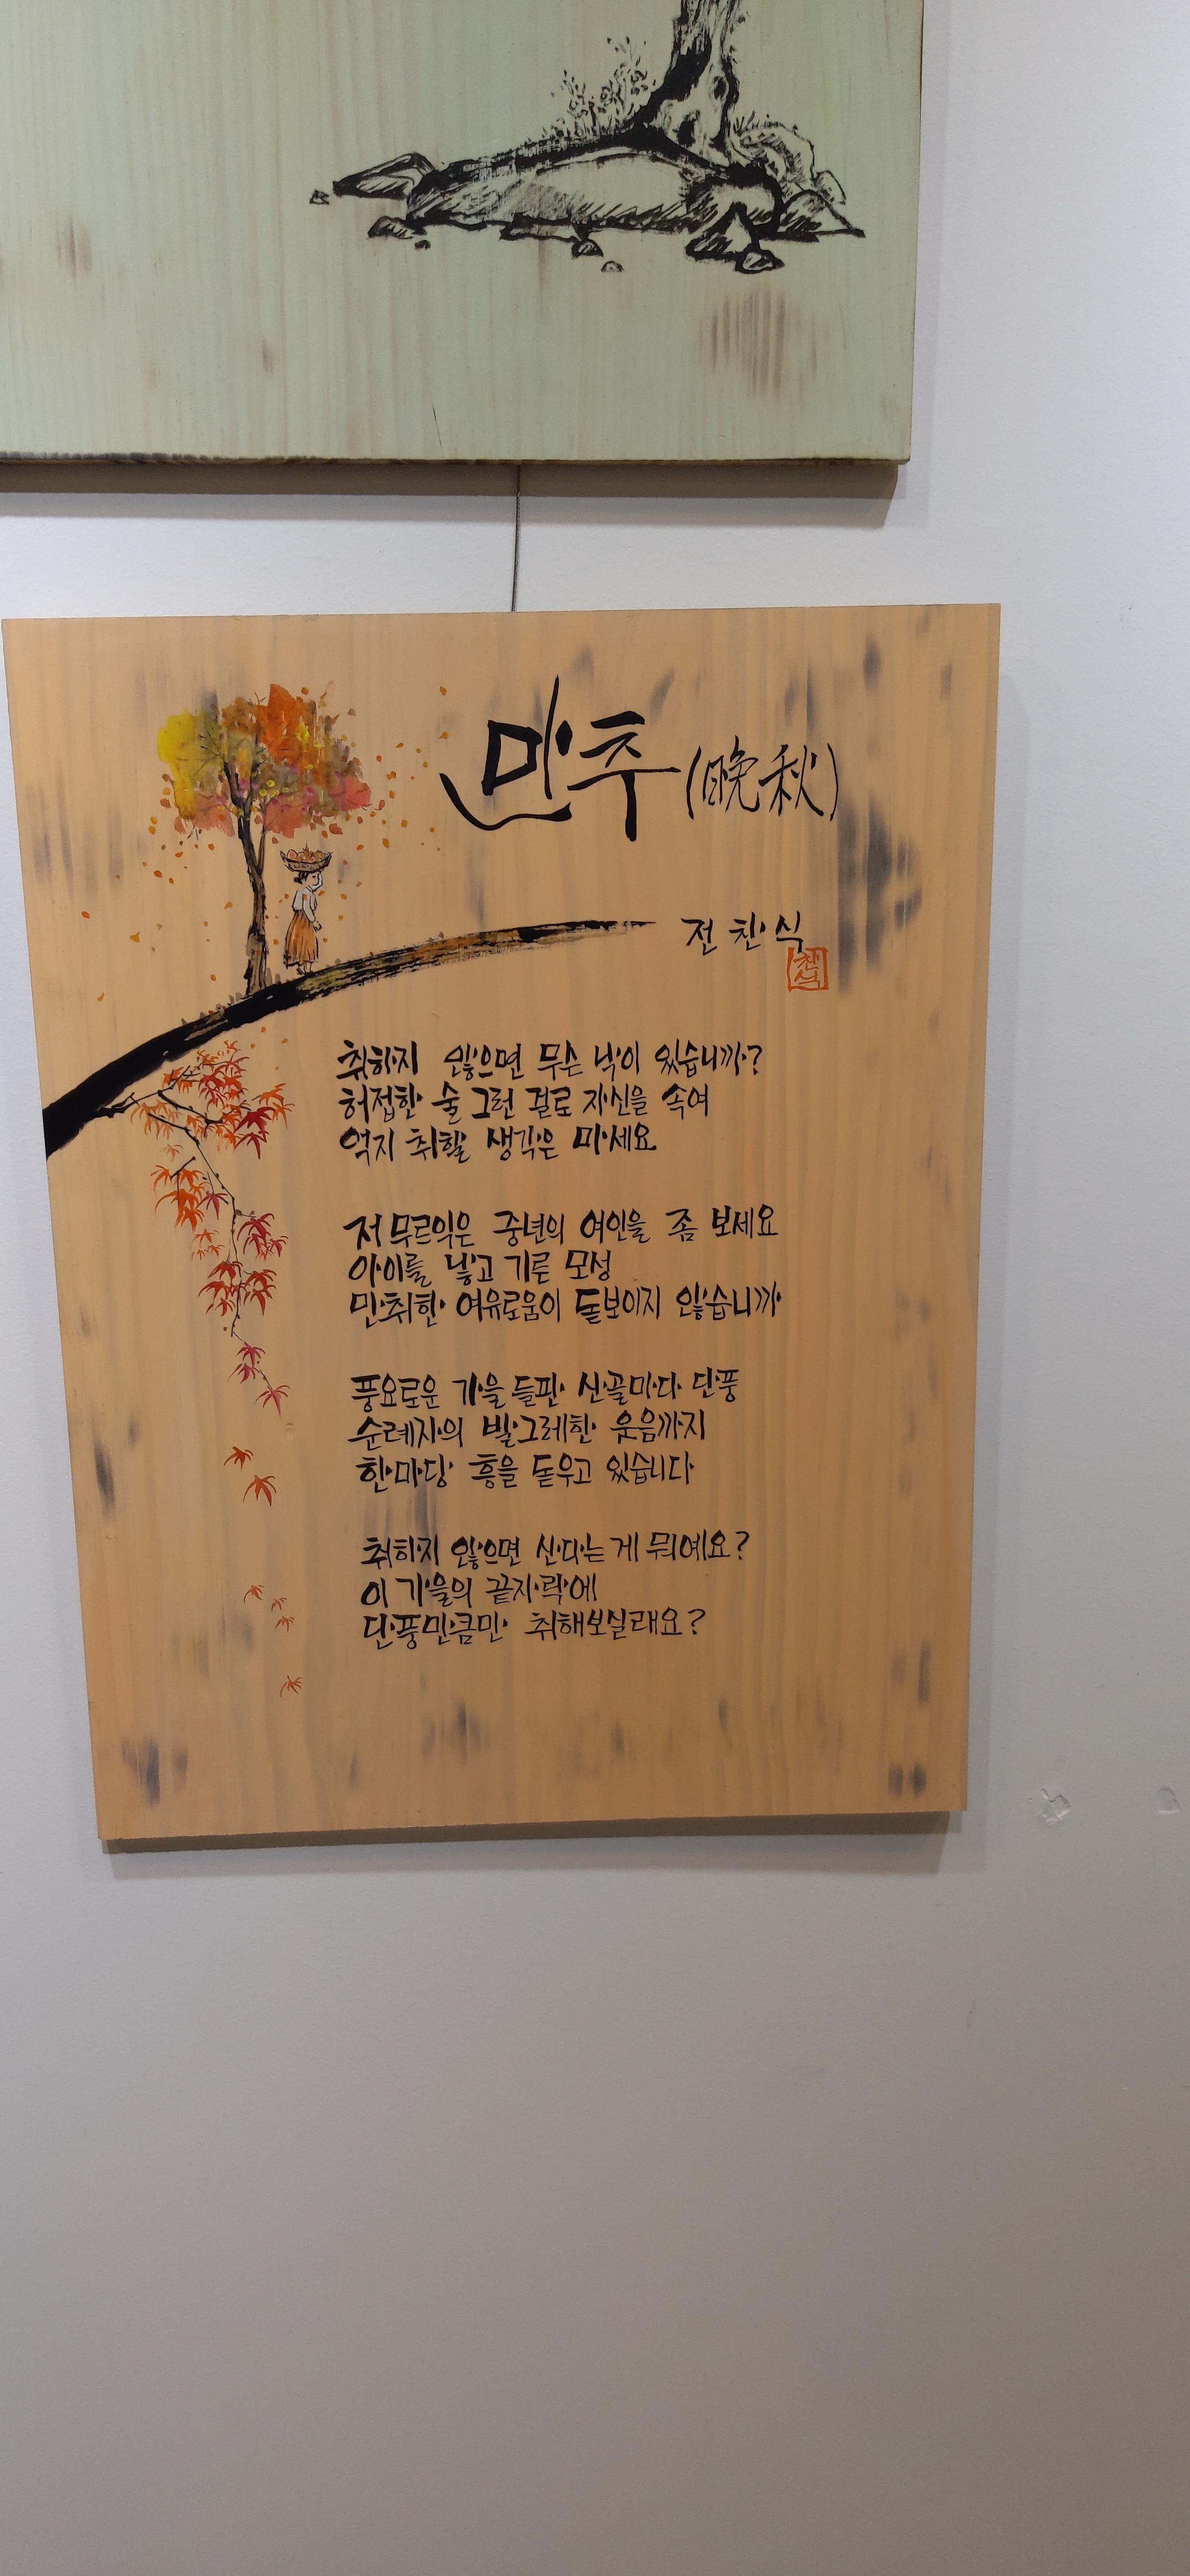 만추(晩秋)
전찬식
찬식
취하지 않으면 무슨 낙이 있습니까?
허접한 술 그런 걸로 자신을 속여
억지 취할 생각은 마세요
저 무르익은 중년의 여인을 좀 보세요
아이를 낳고 기른 모성
만취한 여유로움이 돋보이지 않습니까
풍요로운 가을 들판 산골마다 단풍
순례자의 발그레한 웃음까지
한마당 흥을 돋우고 있습니다
취하지 않으면 산다는 게 뭐예요?
이 가을의 끝자락에
단풍만큼만 취해보실래요?